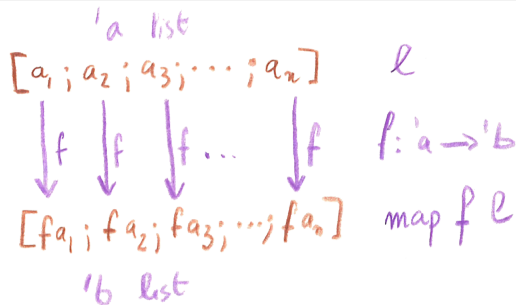 'a list
[a₁; a₂; a₃; ...; aₙ] l
f f f ... f f : 'a → 'b
[f a₁; f a₂; f a₃; ...; f aₙ] map f l
'b list